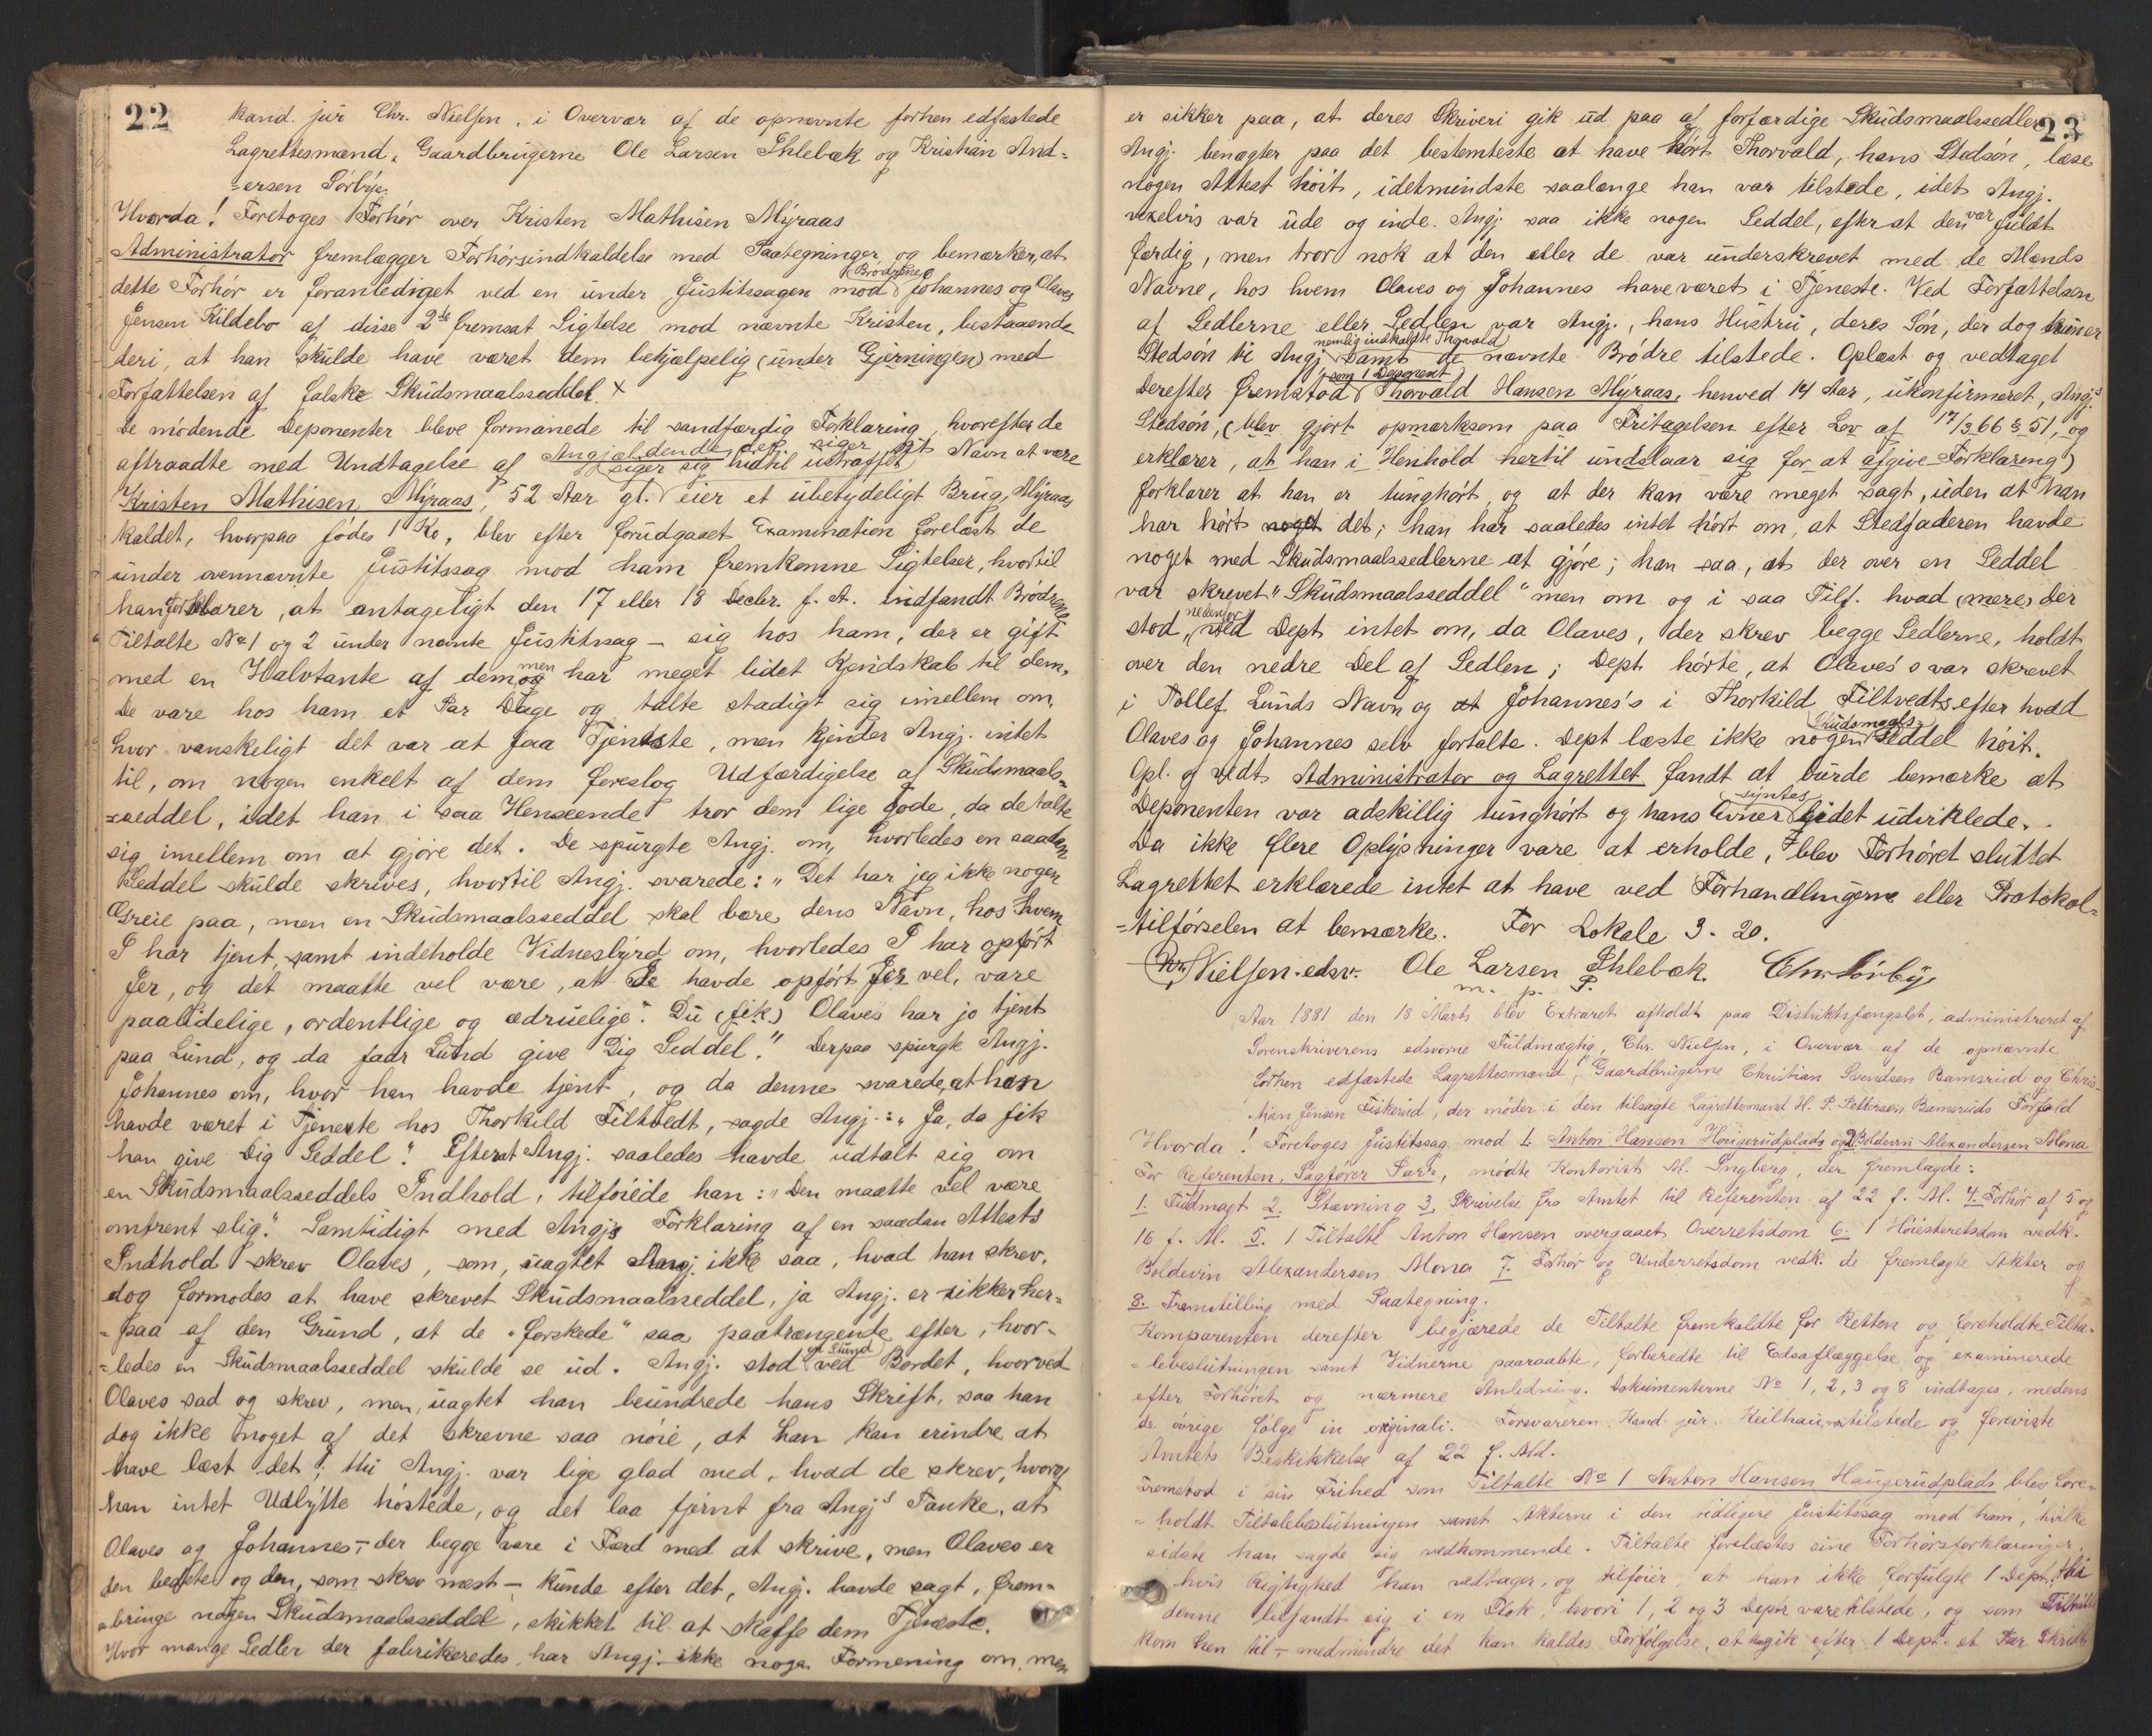 22
kand. jur Chr. Nielsen, i Overvær af de opnævnte forhen edfæstede
Lagrettesmænd, Gaardbrugerne Ole Larsen Ihlebæk og Kristian And-
-ersen Sørby.
Hvorda! Foretoges Forhør over Kristen Mathisen Myraas
Administrator fremlægger Forhørsindkaldelse med Paategninger og bemærker, at
dette Forhør er foranlediget ved en under Justitssagen mod (Brødrene) Johannes og Olaves
Jensen Kildebo af disse 2de fremsat Sigtelse mod nævnte Kristen, bestaaende
deri, at han skulde have været dem behjælpelig (under Gjerningen) med
Forfattelsen af falske Skudsmaalsseddel. x
De mødende Deponenter bleve formanede til sandfærdig Forklaring, hvorefter de
aftraadte med Undtagelse af Angjældende, der siger sit Navn at være
(siger sig hidtil ustraffet)
Kristen Mathisen Myraas, 52 Aar gl. eier et ubetydeligt Brug, Myraas
kaldet, hvorpaa fødes 1 Ko, blev efter forudgaaet Examination forelæst de
under ovennævnte Justitssag mod ham fremkomne Sigtelser, hvortil
han forklarer, at antageligt den 17 eller 18 Decbr. f. A. indfandt Brødrene
Tiltalte No 1 og 2 under nævnte Justitssag – sig hos ham, der er gift
med en Halvtante af dem, men har meget lidet Kjendskab til dem.
De vare hos ham et Par Dage og talte stadigt sig imellem om,
hvor vanskeligt det var at faa Tjeneste, men kjender Angj. intet
til, om nogen enkelt af dem foreslog Udfærdigelse af Skudsmaals-
-seddel, idet han i saa Henseende tror dem lige gode, da de talte
sig imellem om at gjøre det. De spurgte Angj. om, hvorledes en saadan
Seddel skulde skrives, hvortil Angj. svarede: "Det har jeg ikke nogen
Greie paa, men en Skudsmaalsseddel skal bære dens Navn, hos hvem
I har tjent, samt indeholde Vidnesbyrd om, hvorledes I har opført
Jer, og det maatte vel være, at De havde opført Jer vel, vare
paalidelige, ordentlige og ædruelige". Du (fik) Olaves har jo tjent
paa Lund, og da faar Lund give Dig Seddel." Derpaa spurgte Angj.
Johannes om, hvor han havde tjent, og da denne svarede, at han
havde været i Tjeneste hos Thorkild Tiltvedt, sagde Angj.: "Ja, da fik
han give Dig Seddel". Efterat Angj. saaledes havde udtalt sig om
en Skudsmaalsseddels Indhold, tilføiede han: "Den maatte vel være
omtrent slig". Samtidigt med Angjs Forklaring af en saadan Attests
Indhold skrev Olaves, som, uagtet Angj. ikke saa, hvad han skrev,
dog formodes at have skrevet Skudsmaalsseddel, ja Angj. er sikker her-
-paa af den Grund, at de "forskede" saa paatrængende efter, hvor-
-ledes en Skudsmaalsseddel skulde se ud. Angj. stod (en Stund) ved Bordet, hvorved
Olaves sad og skrev, men, uagtet han beundrede hans Skrift, saa han
dog ikke noget af det skrevne saa nøie, at han kan erindre at
have læst det; thi Angj. var lige glad med, hvad de skrev, hvoraf
han intet Udbytte høstede, og det laa fjernt fra Angjs Tanke, at
Olaves og Johannes, – der begge vare i Færd med at skrive, men Olaves er
den bedste og den, som skrev mest – kunde efter det, Angj. havde sagt, frem-
-bringe nogen Skudsmaalsseddel, skikket til at skaffe dem Tjeneste.
Hvor mange Sedler der fabrikeredes, har Angj. ikke nogen Formening om, men
23
er sikker paa, at deres Skriveri gik ud paa af forfærdige Skudsmaalssedler
Angj. benægter paa det bestemteste at have hørt Thorvald, hans Stedsøn, læse
nogen Attest høit, idetmindste saalænge han var tilstede, idet Angj.
vexelvis var ude og inde. Angj. saa ikke nogen Seddel, efter at den var fuldt
færdig, men tror nok at den eller de var underskrevet med de Mænds
Navne, hos hvem Olaves og Johannes have været i Tjeneste. Ved Forfattelsen
af Sedlerne eller Sedlen var Angj., hans Hustru, deres Søn, der dog kun er
Stedsøn til Angj. (nemlig indkaldte Thorvald) samt de nævnte Brødre tilstede. Oplæst og vedtaget
Derefter fremstod (som 1 Deponent) Thorvald Hansen Myraas, henved 14 Aar, ukonfirmeret, Angjs
Stedsøn, (blev gjort opmærksom paa Fritagelsen efter Lov af 17/3 66 § 51, og
erklærer, at han i Henhold hertil undslaar sig for at afgive Forklaring)
forklarer at han er tunghørt, og at der kan være meget sagt, uden at han
har hørt noget det; han har saaledes intet hørt om, at Stedfaderen havde
noget med Skudsmaalssedlerne at gjøre; han saa, at der over en Seddel
var skrevet "Skudsmaalsseddel" men om og i saa Tilf. hvad (mere) der
stod nedenfor, ved Dept. intet om, da Olaves, der skrev begge Sedlerne, holdt
over den nedre Del af Sedlen; Dept. hørte, at Olaves's var skrevet
i Tollef Lunds Navn og at Johannes's i Thorkild Tiltvedts, efter hvad
Olaves og Johannes selv fortalte. Dept læste ikke nogen (Skudsmaals-) Seddel høit.
Opl. og vedt. Administrator og Lagrettet fandt at burde bemærke at
Deponenten var adskillig tunghørt og hans Evner (syntes) lidet udviklede.
Da ikke flere Oplysninger vare at erholde, blev Forhøret sluttet
Lagrettet erklærede intet at have ved Forhandlingerne eller Protokol-
-tilførselen at bemærke. For Lokale 3. 20.
Chr. Nielsen. edsv. Ole Larsen Ihlebæk. Chr Sørby
m. p. P.
Aar 1881 den 18 Marts blev Extraret afholdt paa Distriktsfængslet, administreret af
Sorenskriverens edsvorne Fuldmægtig, Chr. Nielsen, i Overvær af de opnævnte
forhen edfæstede Lagrettesmænd, Gaardbrugerne Christian Svendsen Bamsrud og Chris-
-tian Jensen Fiskerud, der møder i den tilsagte Lagrettesmand H. P. Pettersen Bamsruds Forfald
Hvorda! Foretoges Justitssag mod 1. Anton Hansen Haugerudplads og 2 Boldevin Alexandersen Mona
For Referenten, Sagfører Sarr, mødte Kontorist M. Ingberg, der fremlagde:
1. Fuldmagt 2. Stævning 3. Skrivelse fra Amtet til Referenten af 22 f. M. 4. Forhør af 5 og
16 f. M. 5. 1 Tiltalte Anton Hansen overgaaet Overretsdom 6. 1 Høiesteretsdom vedk.
Boldevin Alexandersen Mona 7. Forhør og Underretsdom vedk. de fremlagte Akter og
8. Fremstilling med Paategning.
Komparenten derefter begjærede de Tiltalte fremkaldte for Retten og foreholdte Tilta-
-lebeslutningen samt Vidnerne paaraabte, forberedte til Edsaflæggelse og examinerede
efter Forhøret og nærmere Anledning. Dokumenterne No 1, 2, 3 og 8 indtages, medens
de øvrige følge in originali. Forsvareren, Kand. jur. Keilhau, var tilstede og foreviste
Amtets Beskikkelse af 22 f. Md.
Fremstod i sin Frihed som Tiltalte No 1 Anton Hansen Haugerudplads blev fore-
-holdt Tiltalebeslutningen samt Akterne i den tidligere Justitssag mod ham, hvilke
sidste han sagde sig vedkommende. Tiltalte forelæstes sine Forhørsforklaringer,
hvis Rigtighed han vedtager, og tilføier, at han ikke forfulgte 1 Dept., thi
denne befandt sig i en Flok, hvori 1, 2 og 3 Depr vare tilstede, og som Tiltalte
kom hen til – medmindre det kan kaldes Forfølgelse, at han gik efter 1 Dept. et Par Skridt